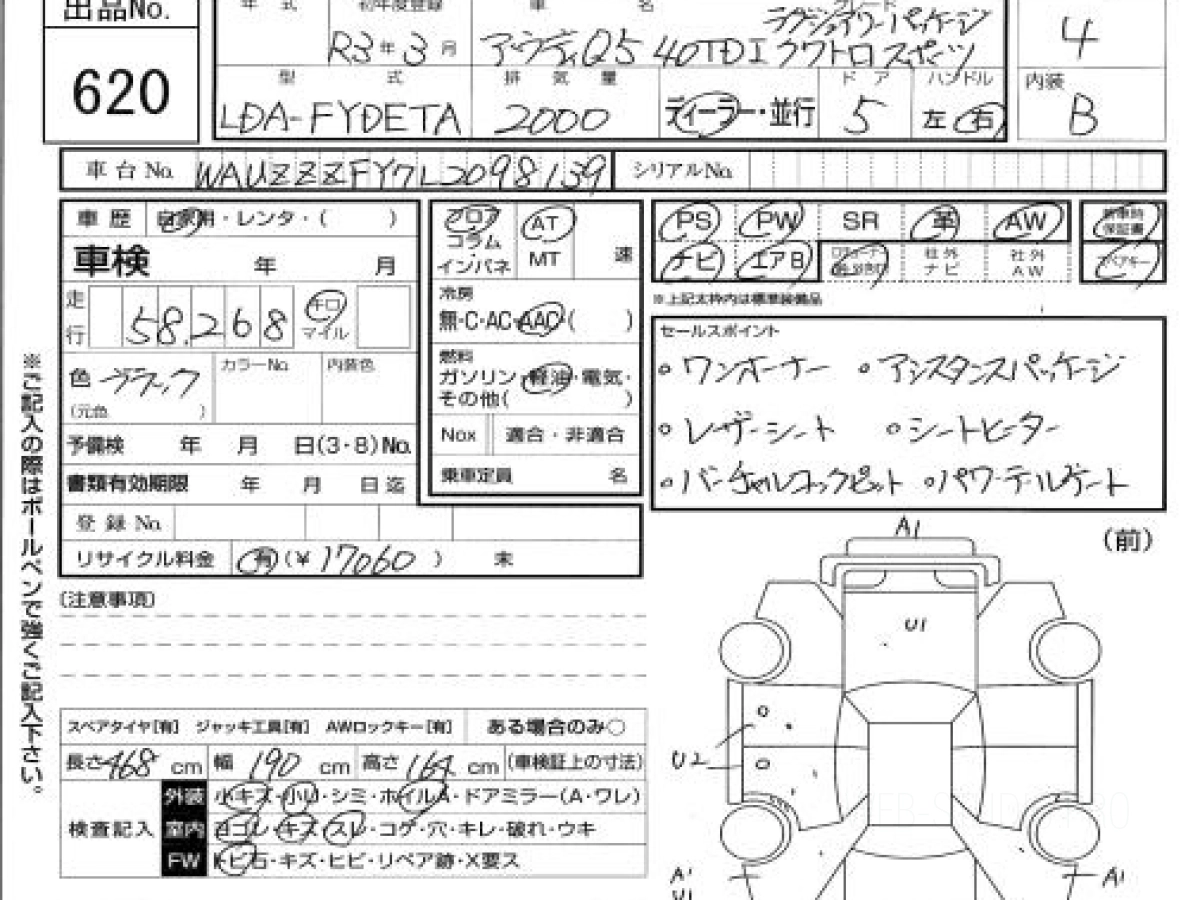 出品No.
年 式 初年度登録 車 名 グレード
ラグジュアリーパッケージ
R3年3月 アウディQ5 40TDI クワトロスポーツ
4
620
型 式 排 気 量 ドア ハンドル 内装
LDA-FYDETA 2000 ディーラー・並行 5 左 右 B
車台No. WAUZZZFY7L2098139 シリアルNo.
車歴 自家用・レンタ・( )
フロア コラム インパネ
AT MT 速
PS PW SR 革 AW 新車時保証書
車検 年 月
ナビ エアB 社外ナビ 社外AW スペアキー
※上記太枠内は標準装備品
走行 58,268 キロ マイル
冷房
無・C・AC・AAC・( )
セールスポイント
燃料
ガソリン・軽油・電気・
その他( )
色 ブラック カラーNo. 内装色
(元色 )
○ワンオーナー ○アシスタンスパッケージ
○レザーシート ○シートヒーター
○バーチャルコックピット ○パワーテールゲート
予備検 年 月 日(3・8)No.
Nox 適合・非適合
書類有効期限 年 月 日迄
乗車定員 名
登録No.
リサイクル料金 有(¥17060 ) 未
※ご記入の際はボールペンで強くご記入下さい。
(注意事項)
(前)
A1
U1
U2
A1
U1
A1
スペアタイヤ[有] ジャッキ工具[有] AWロックキー[有] ある場合のみ○
長さ468cm 幅190cm 高さ164cm (車検証上の寸法)
検査記入
外装 小キズ・小U・シミ・ホイルA・ドアミラー(A・ワレ)
室内 ヨゴレ・キズ・スレ・コゲ・穴・キレ・破れ・ウキ
FW トビ石・キズ・ヒビ・リペア跡・X要ス